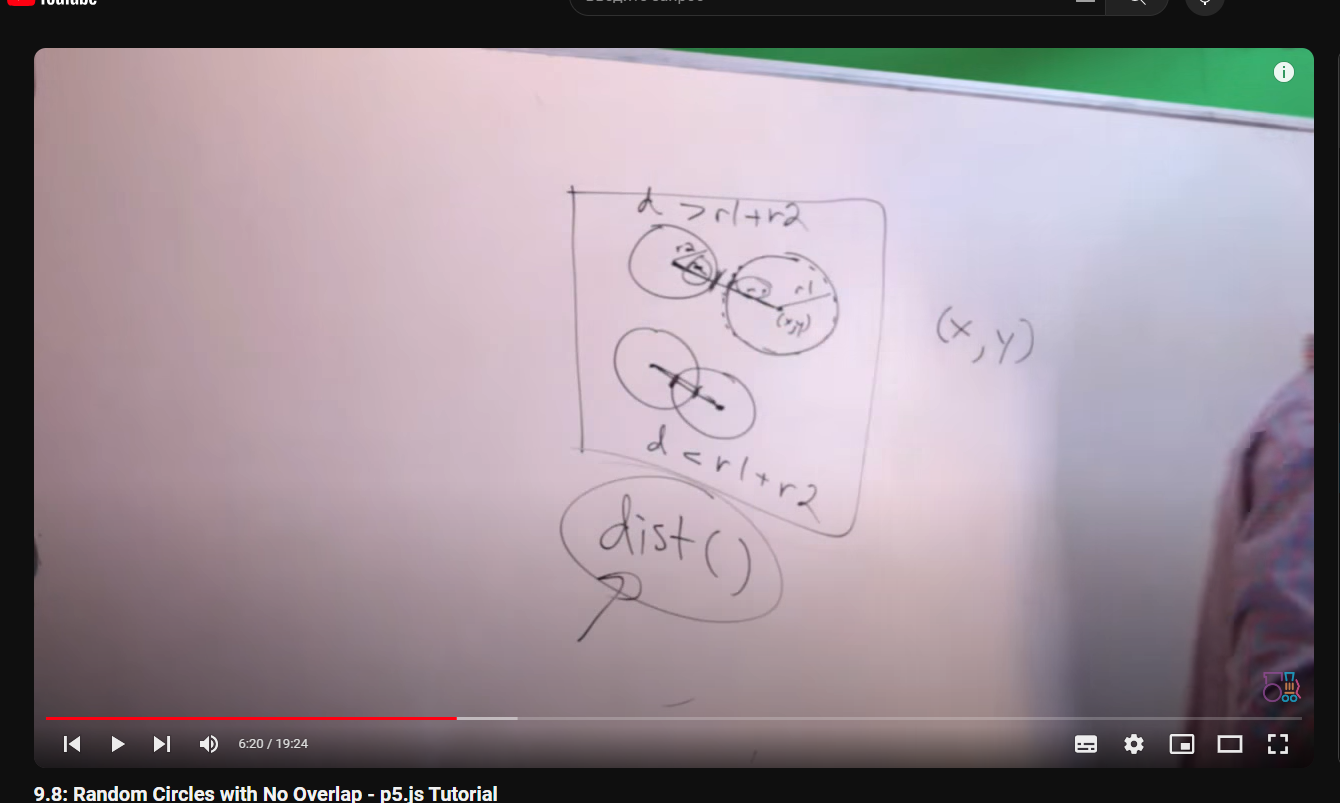 YouTube
Введите запрос
d > r1+r2
r2
r1
(x,y)
(x,y)
d < r1+r2
dist()
6:20 / 19:24
9.8: Random Circles with No Overlap - p5.js Tutorial